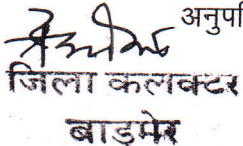 अनुपा
जिला कलक्टर
बाड़मेर